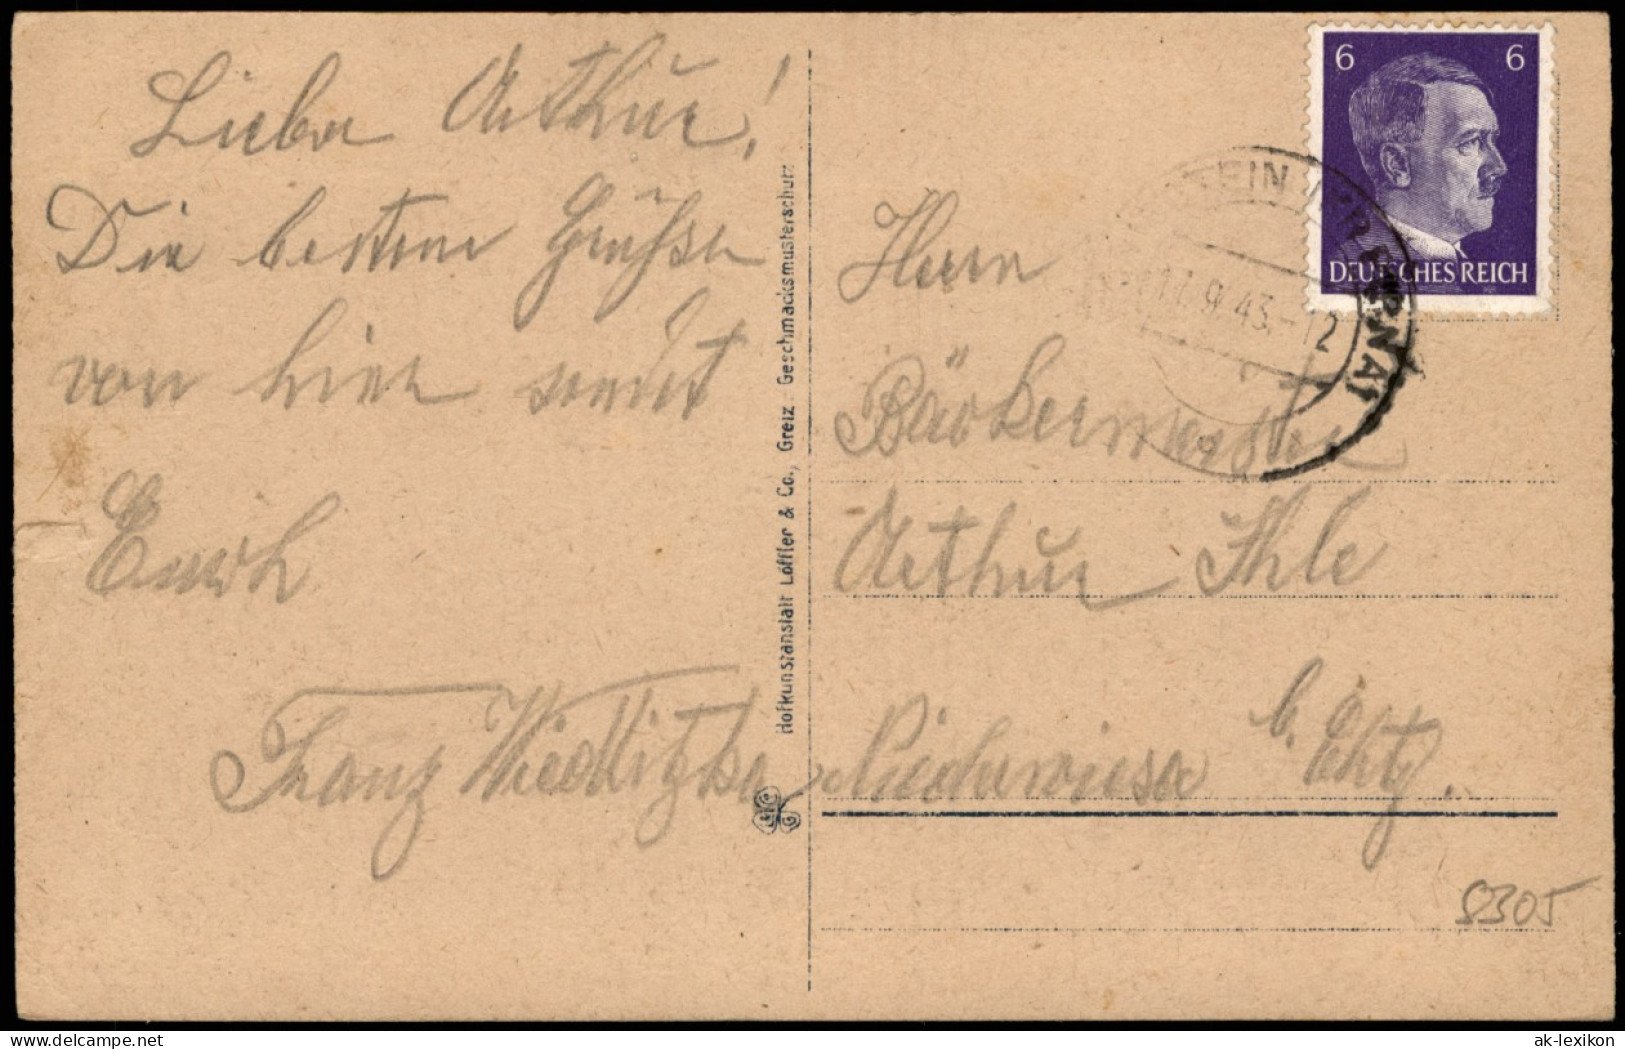 Lieber Arthur!
Die besten Grüße
von hier sendet
Euch
Franz
Hofkunstanstalt Löffler & Co., Greiz Geschmacksmusterschutz
6 6
DEUTSCHES REICH
17.9.43.-12
Herrn
Bäckermeister
Arthur Ihle
Niederwiesa b. Chtz.
8305
ak-lexikon